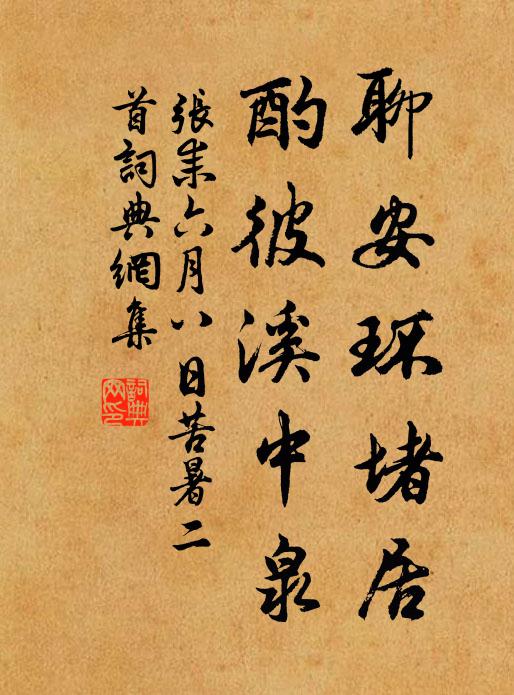 聊安环堵居
酌彼溪中泉
張耒六月八日苦暑二
首詞典網集
詞典網印